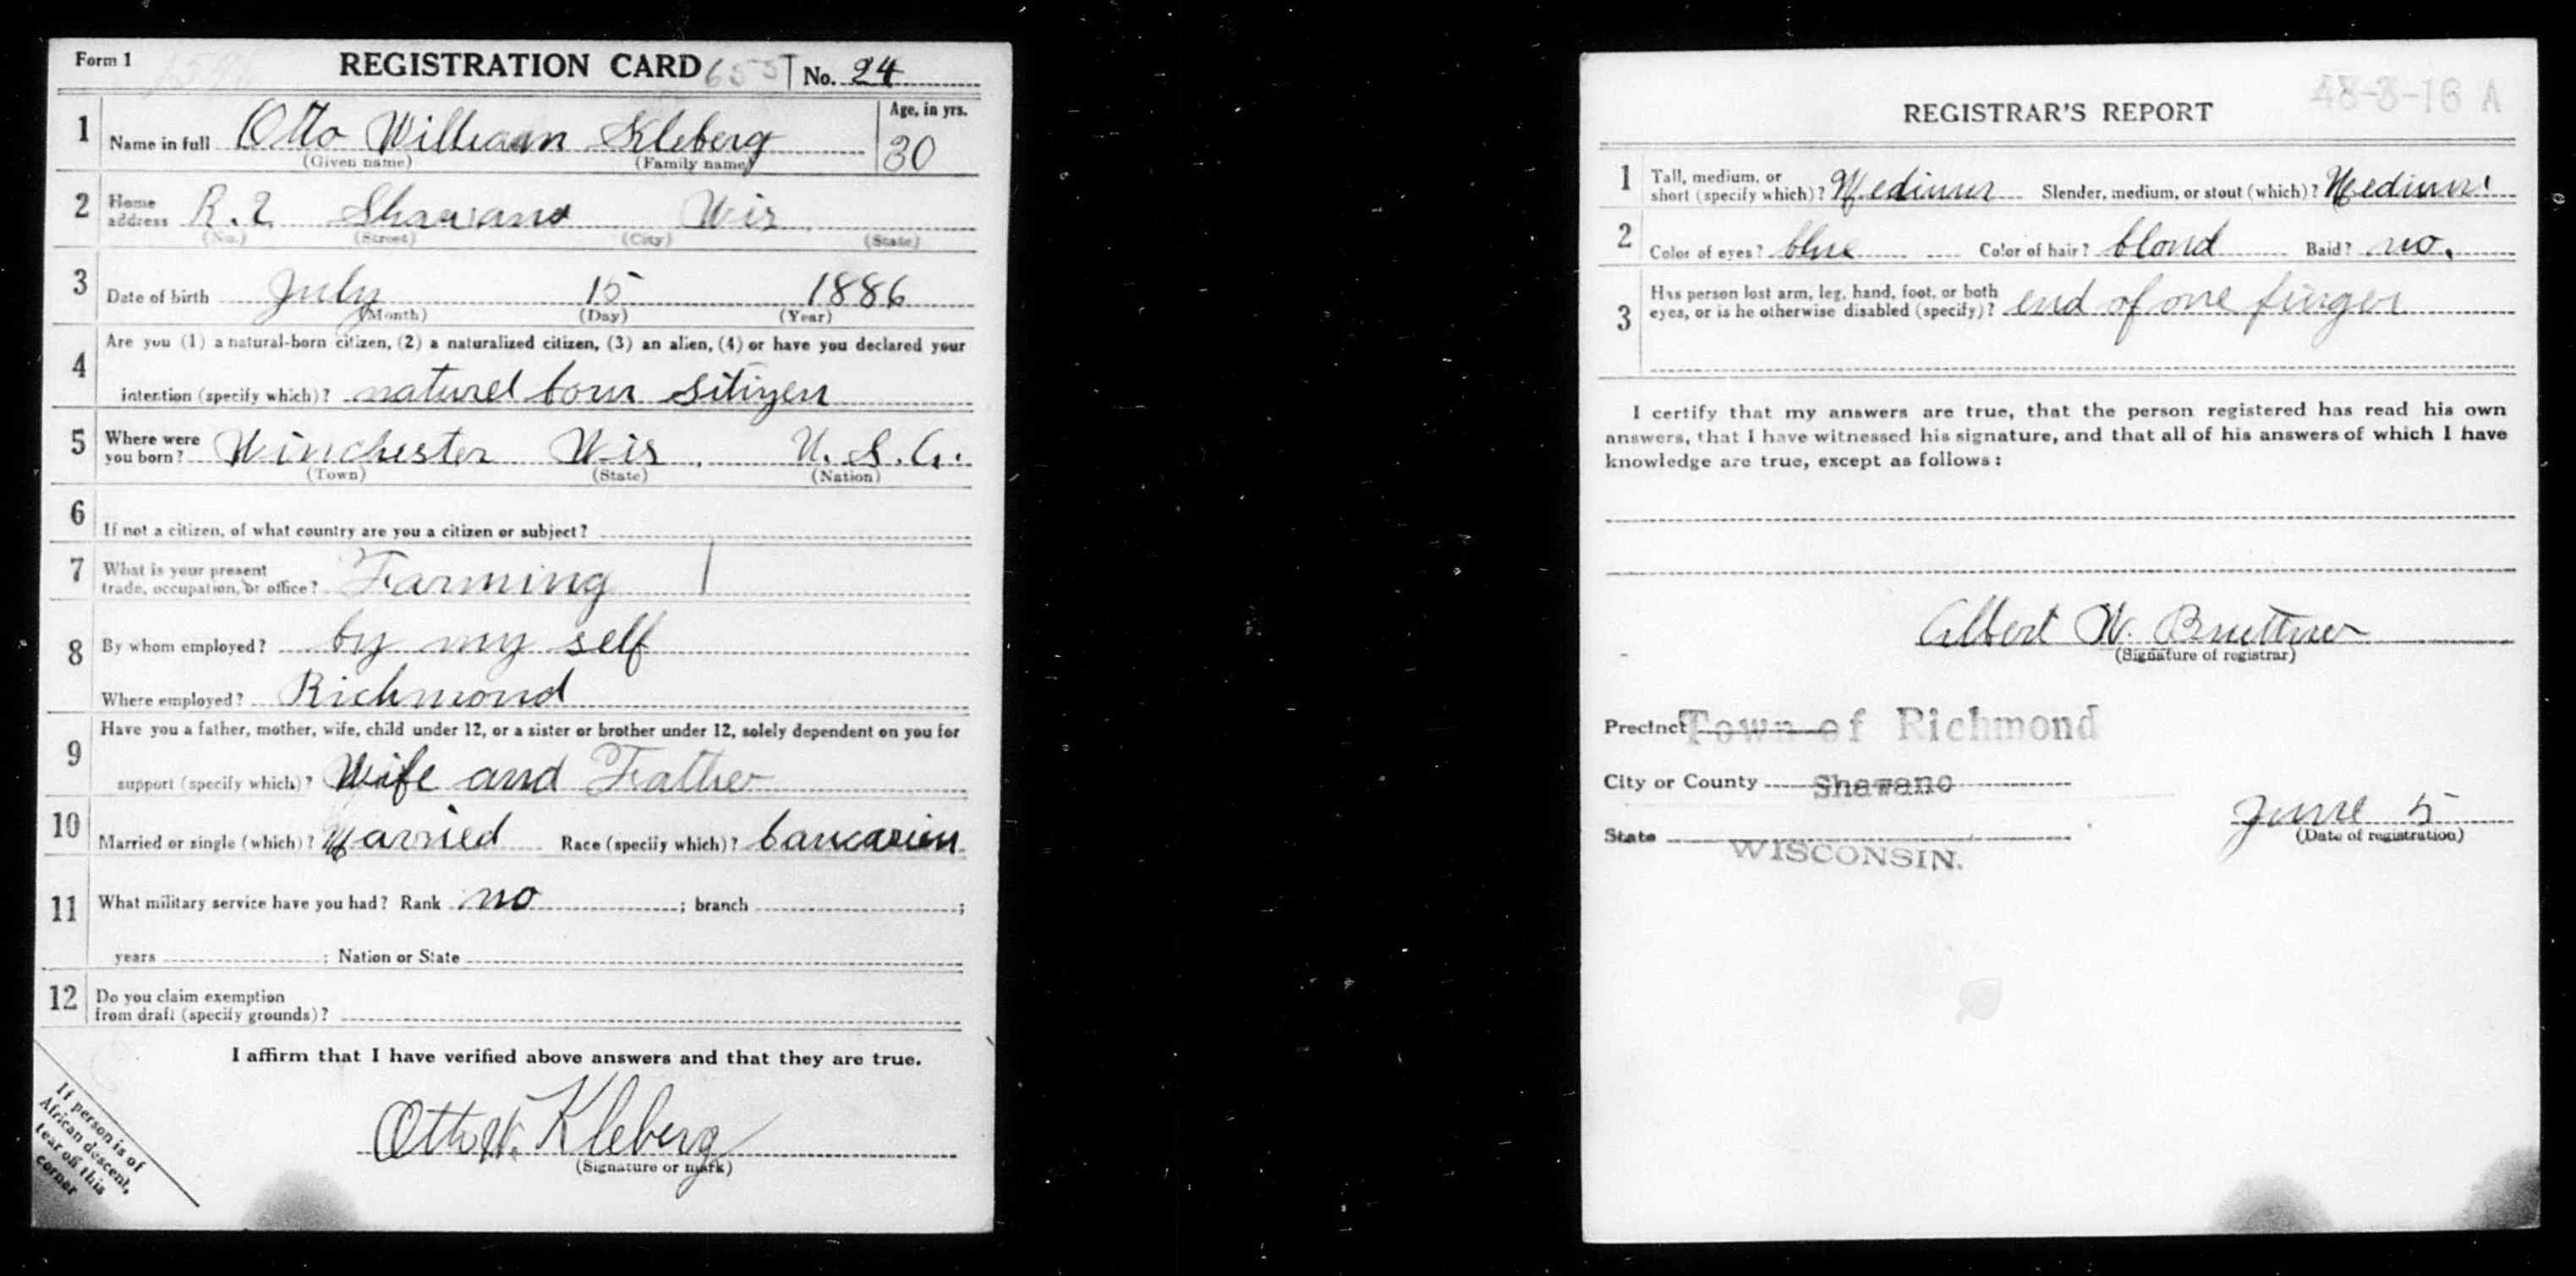 Form 1 REGISTRATION CARD 655 No. 24
1 Name in full Otto William Kleberg Age, in yrs. 30
(Given name) (Family name)
2 Home address R. 2 Shawano Wis
(No.) (Street) (City) (State)
3 Date of birth July 15 1886
(Month) (Day) (Year)
4 Are you (1) a natural-born citizen, (2) a naturalized citizen, (3) an alien, (4) or have you declared your
intention (specify which)? naturel born sitizen
5 Where were you born? Winchester Wis. U. S. A.
(Town) (State) (Nation)
6 If not a citizen, of what country are you a citizen or subject?
7 What is your present
trade, occupation, or office? Farming
8 By whom employed? by my self
Where employed? Richmond
9 Have you a father, mother, wife, child under 12, or a sister or brother under 12, solely dependent on you for
support (specify which)? Wife and Father
10 Married or single (which)? Married Race (specify which)? caucasien
11 What military service have you had? Rank no ; branch ;
years ; Nation or State
12 Do you claim exemption
from draft (specify grounds)?
I affirm that I have verified above answers and that they are true.
Otto W. Kleberg
(Signature or mark)
If person is of
African descent,
tear off this
corner
48-3-16 A
REGISTRAR'S REPORT
1 Tall, medium, or
short (specify which)? Medium Slender, medium, or stout (which)? Medium
2 Color of eyes? blue Color of hair? blond Bald? no.
3 Has person lost arm, leg, hand, foot, or both
eyes, or is he otherwise disabled (specify)? end of one finger
I certify that my answers are true, that the person registered has read his own
answers, that I have witnessed his signature, and that all of his answers of which I have
knowledge are true, except as follows:
Albert W. Bruettner
(Signature of registrar)
Precinct Town of Richmond
City or County Shawano
State WISCONSIN.
June 5
(Date of registration)